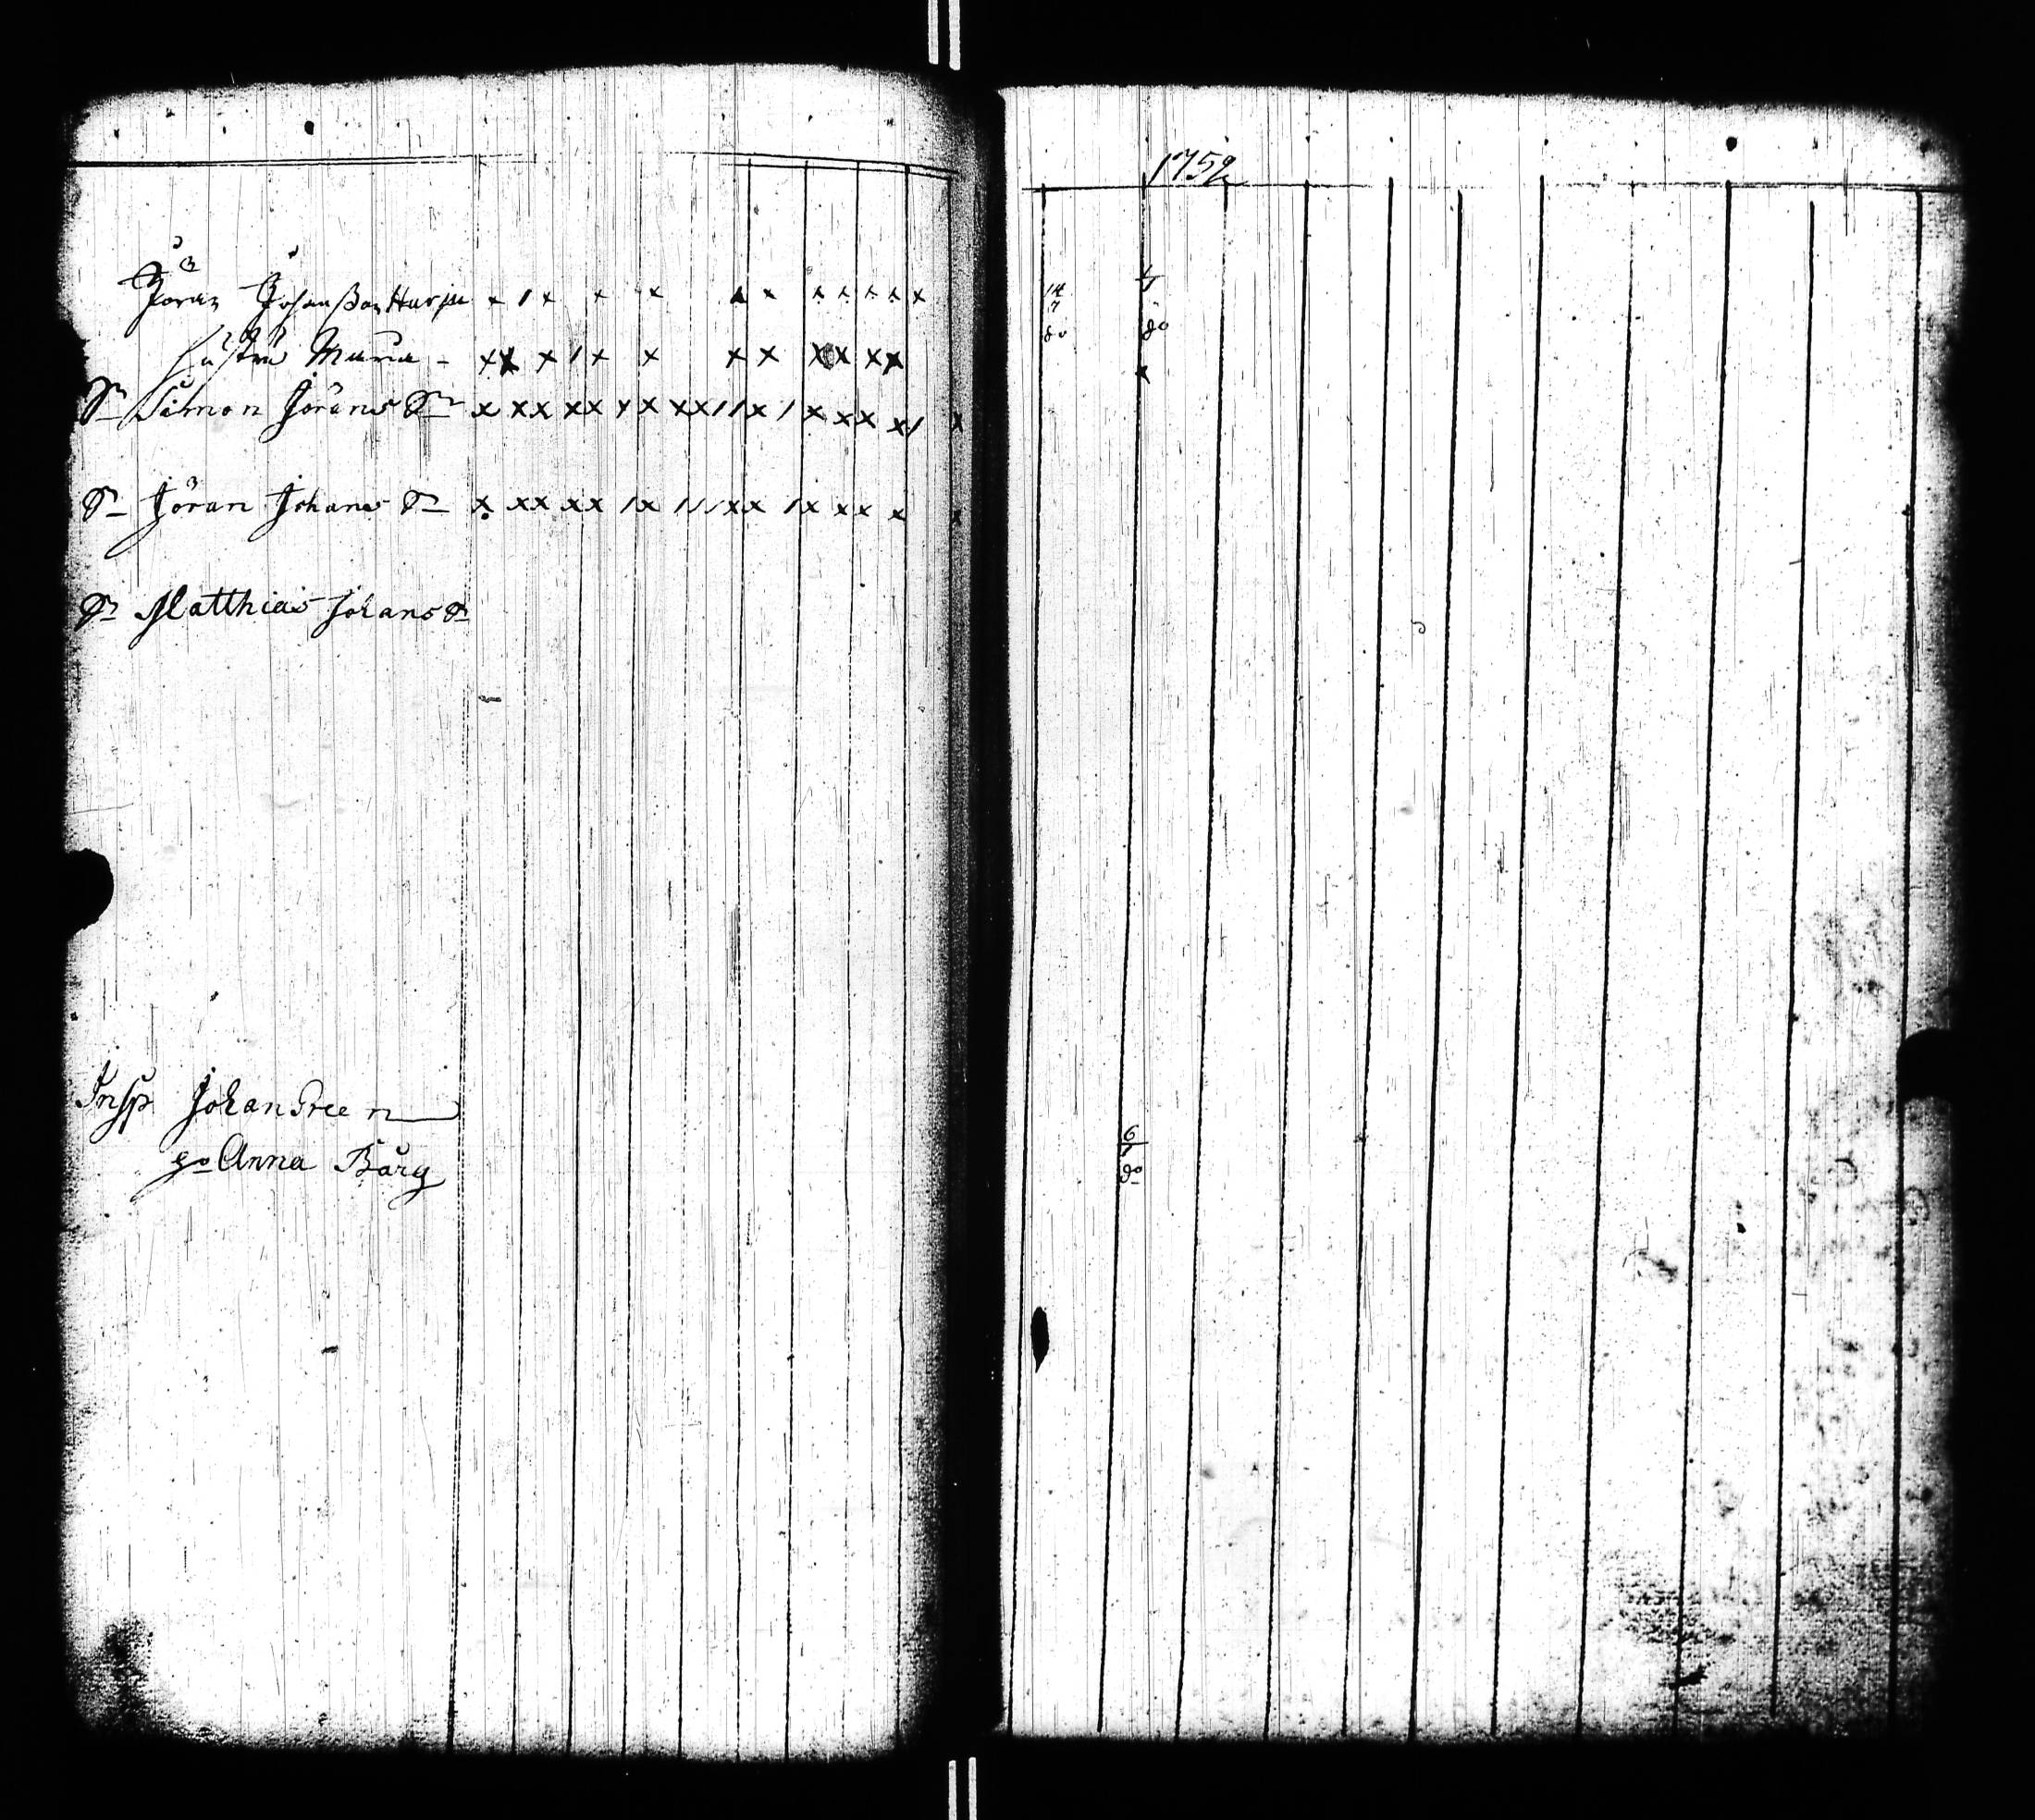 Jöran Johansson Harju x / x x x x x x x x x x
Hustru Maria - x x x / x x x x x x x x
Sn Simon Jörans Sn x xx xx x x xx / / x / x x x x / x
Sn Jöran Johans Sn x xx xx / x / / / xx / x x x x x
Sn Matthias Johans Sn
Insp Johan Green
Anna Bärg
1752
14 4
7
do do
6
do